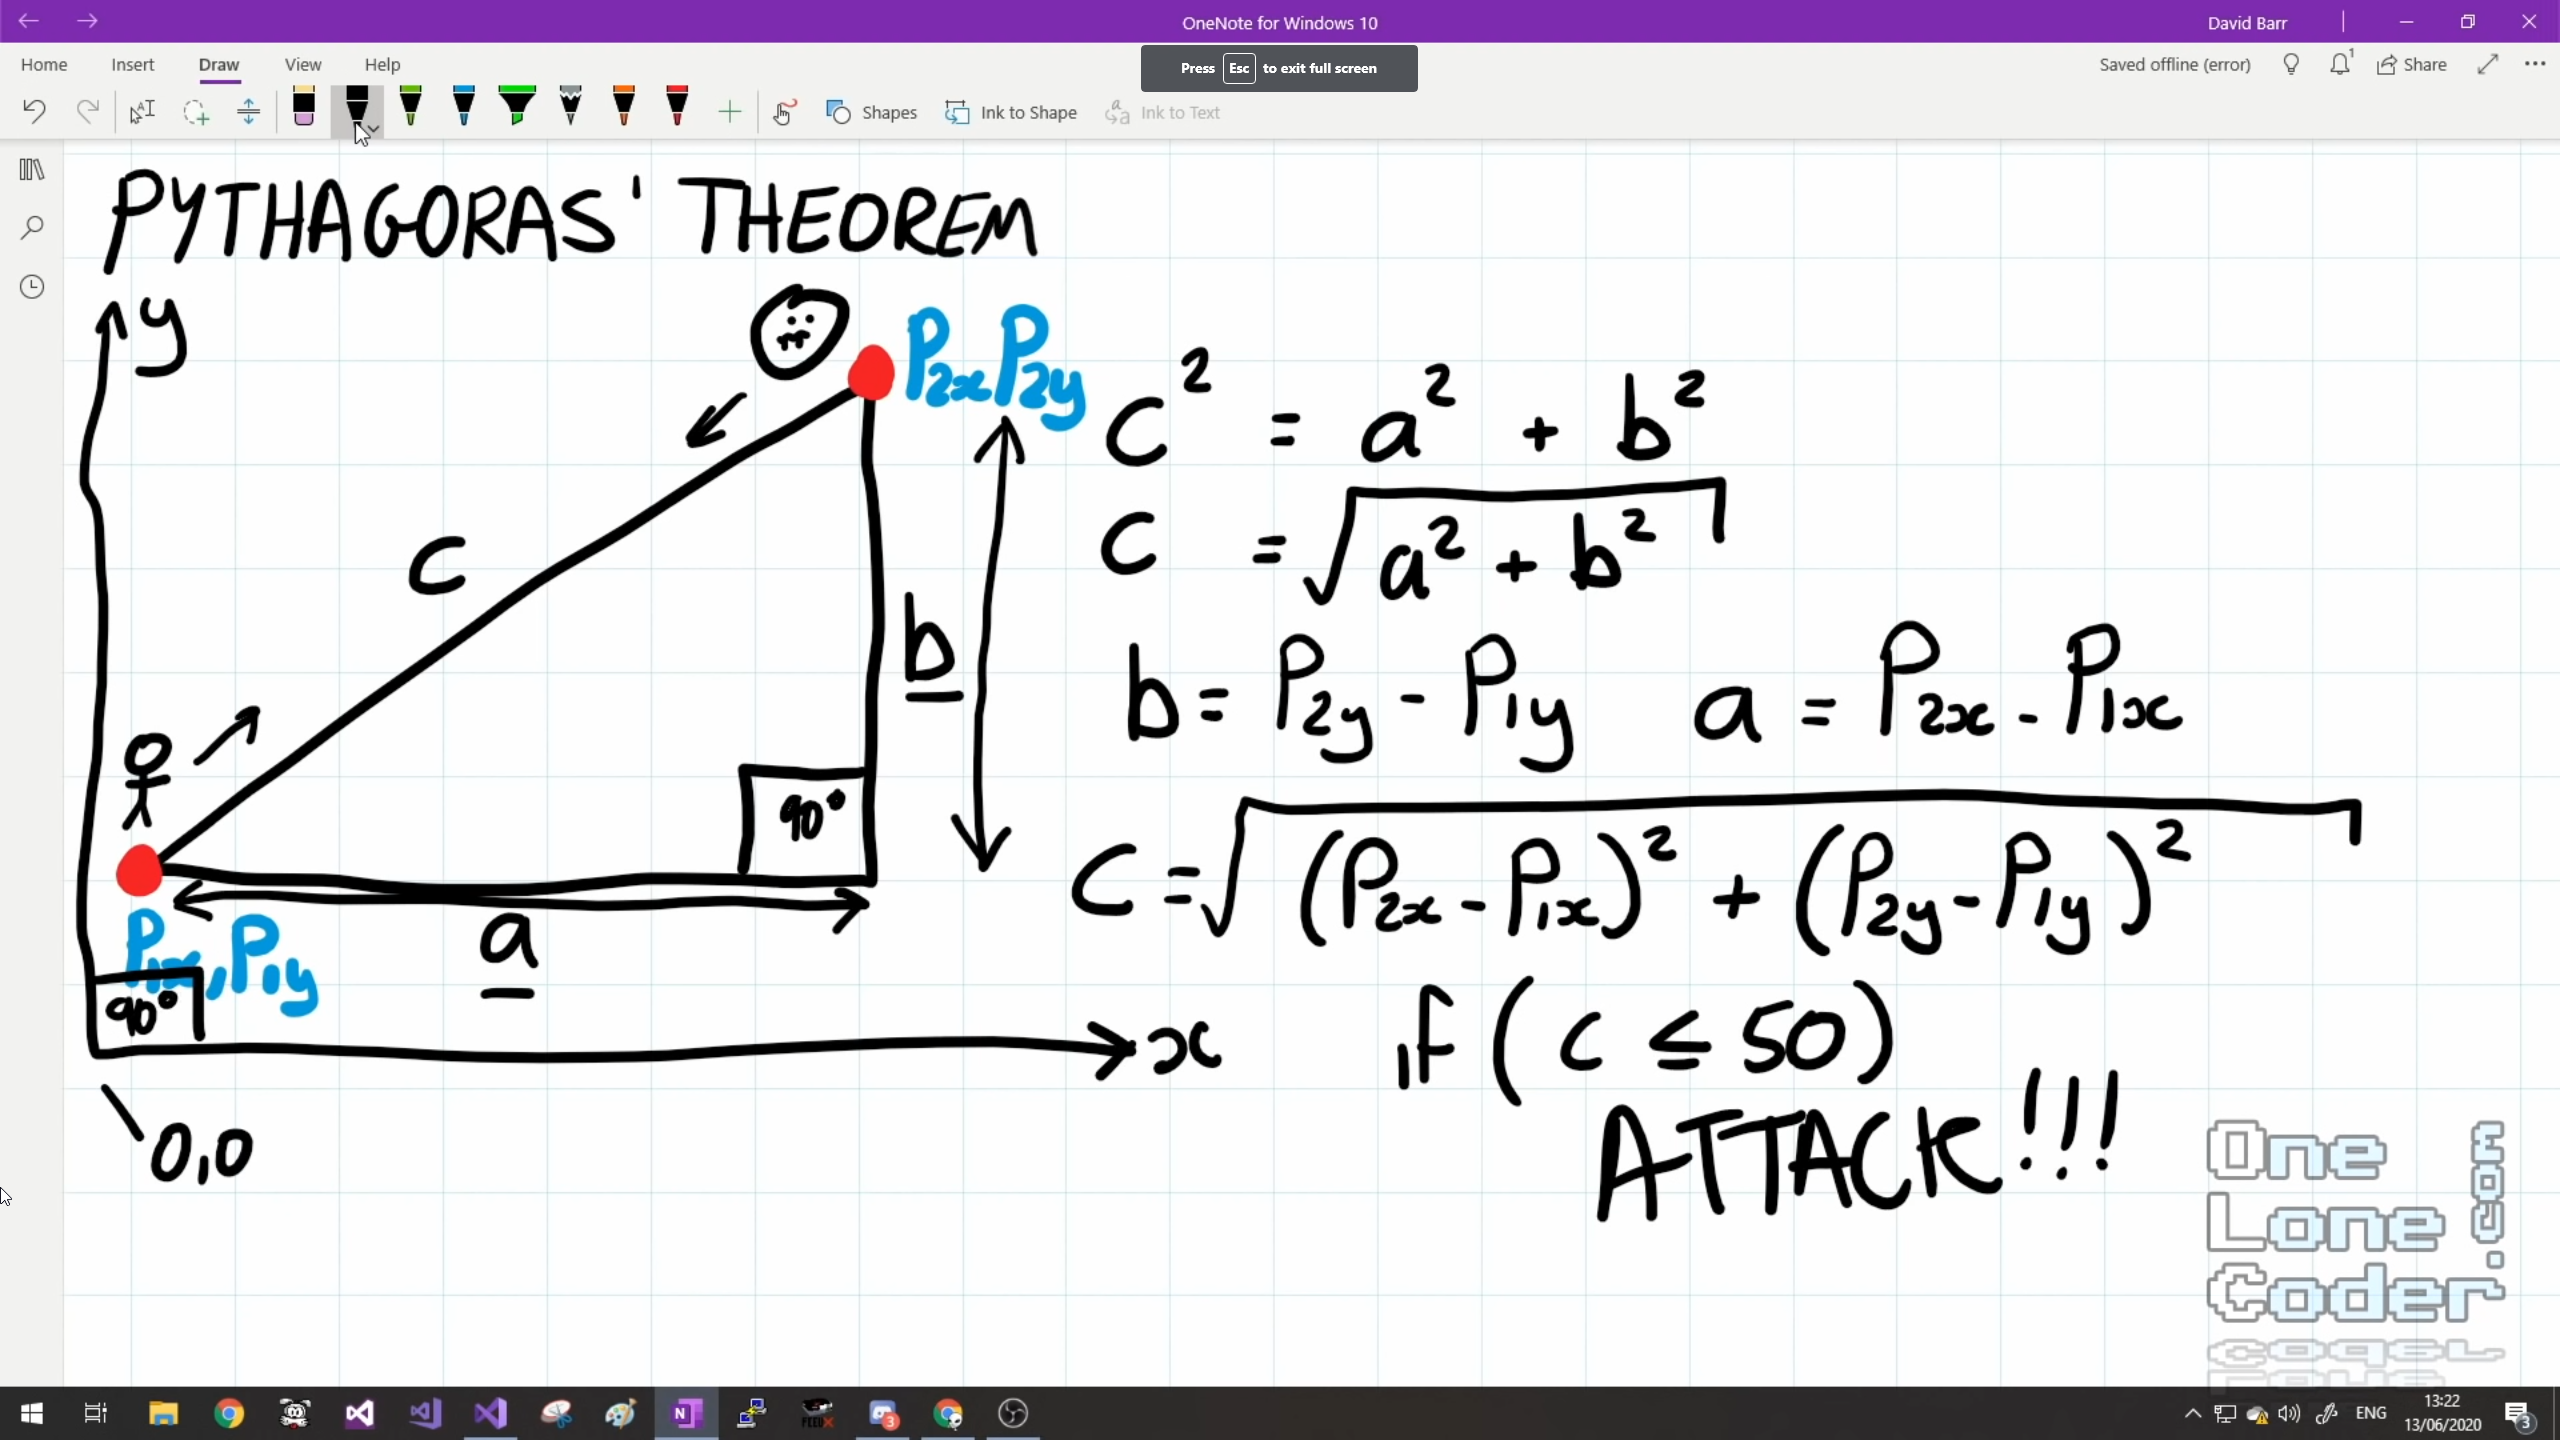 OneNote for Windows 10
David Barr
Press Esc to exit full screen
Home Insert Draw View Help
Saved offline (error)
Share
Shapes
Ink to Shape
Ink to Text
PYTHAGORAS' THEOREM
y
P2x P2y
c
b
90°
a
P1x, P1y
90°
x
0,0
c² = a² + b²
c = √a² + b²
b = P2y - P1y a = P2x - P1x
C = √(P2x - P1x)² + (P2y - P1y)²
if ( c ≤ 50)
ATTACK!!!
One
Lone
Coder
.com
ENG
13:22
13/06/2020